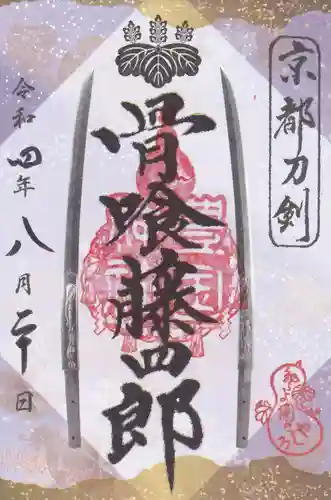 京都刀剣
骨喰藤四郎
令和四年八月二十日